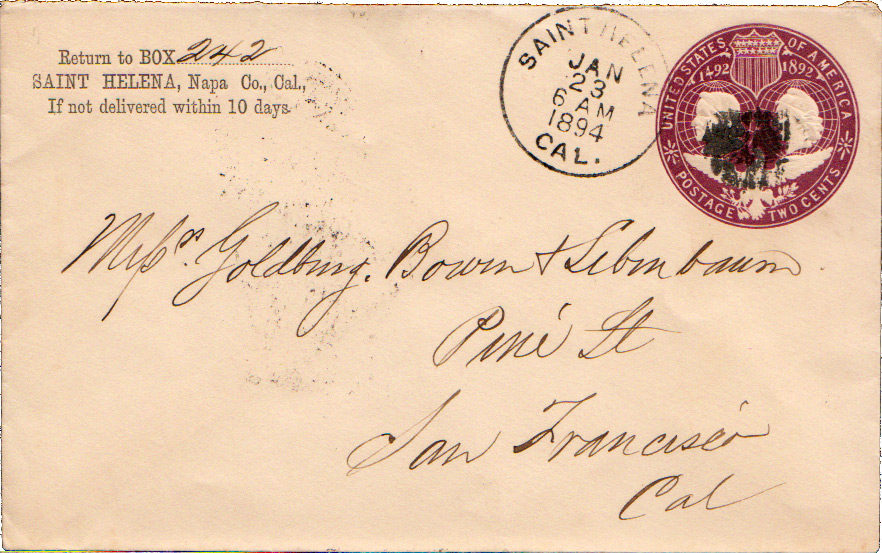 Return to BOX 242
SAINT HELENA, Napa Co., Cal.,
If not delivered within 10 days.
SAINT HELENA
JAN
23
6 AM
1894
CAL.
UNITED STATES OF AMERICA
1492 1892
POSTAGE TWO CENTS
Messrs. Goldburg, Bowen & Lebenbaum
Pine St
San Francisco
Cal